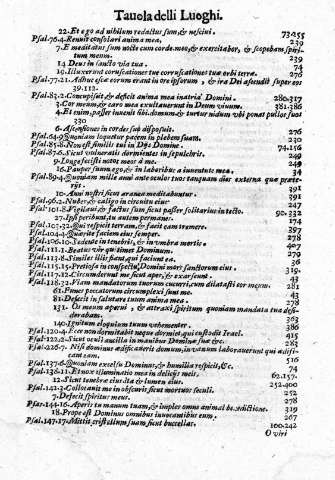 Tauola delli Luoghi.
22. Et ego ad nihilum redactus sum, & nesciui. 73.255
Psal. 76.4. Renuit consolari anima mea. 239
7. E meditatus sum nocte cum corde meo, & exercitabar, & scopebam spiri
tum meum. 239
14. Deus in sancto via tua. 74
19. Illuxerunt coruscationes tuæ coruscationes tua orbi terræ. 276
Psal. 77.21. Adhuc escæ eorum erant in ore ipsorum, & ira Dei ascendit super eos
39.112.
Psal. 83.2. Concupiscit & deficit anima mea in atria Domini. 280.317
3. Cor meum, & caro mea exultauerunt in Deum viuum. 381.386
4. Et enim passer inuenit sibi domum, & turtur nidum vbi ponat pullos suos
330
6. Ascensiones in corde suo disposuit. 276
Psal. 84.9. Quoniam loquetur pacem in plebem suam. 230
Psal. 85.8. Non est similis tui in Dijs Domine. 74.116
Psal. 87.6. Sicut vulnerati dormientes in sepulchris. 249
9. Longe fecisti notos meos à me. 249
16. Pauper sum ego, & in laboribus à iuuentute mea. 34
Psal. 89.4. Quoniam mille anni ante oculos tuos tanquam dies externa quæ præte-
rijt. 391
10. Anni nostri sicut aranea meditabuntur. 391
Psal. 96.2. Nubes, & caligo in circuitu eius. 247
Psal. 101.8. Vigilaui, & factus sum sicut passer solitarius in tecto. 90.332
27. Ipsi peribunt, tu autem permanes. 174
Psal. 103.32. Qui respicit terram, & facit eam tremere. 397
Psal. 104.4. Quærite faciem eius semper. 278
Psal. 106.10. Sedentes in tenebris, & in vmbra mortis. 407
Psal. 111.1. Beatus vir qui timet Dominum. 279
Psal. 113.8. Similes illis fiant, qui faciunt ea. 36
Psal. 115.15. Pretiosa in conspectu Domini mors sanctorum eius. 319.
Psal. 117.12. Circumdederunt me sicut apes, & exarserunt. 43
Psal. 118.32. Viam mandatorum tuorum cucurri, cum dilatasti cor meum. 281
61. Funes peccatorum circumplexi sunt me. 43
81. Defecit in salutare tuum anima mea. 278
131. Os meum aperui, & attraxi spiritum quoniam mandata tua desi-
derabam. 263
140. Ignitum eloquium tuum vehementer. 386
Psal. 120.4. Ecce non dormitabit neque dormiet, qui custodit Israel. 415
Psal. 122.2. Sicut oculi ancillæ in manibus Dominæ suæ &c. 283
Psal. 226.7. Nisi dominus ædificauerit domum, in vanum laborauerunt qui ædifi-
cant eam. 516
Psal. 137.6. Quoniam excelsus Dominus, & humilia respicit, &c. 74
Psal. 138.11. Et nox illuminatio mea in delitijs meis. 62.157.
12. Sicut tenebræ eius, ita & lumen eius. 252.400
Psal. 142.3. Collocauit me in obscuris sicut mortuos seculi. 252
7. Defecit spiritus meus. 278
Psal. 144.16. Aperis tu manum tuam, & imples omne animal benedictione. 319
18. Prope est Dominus omnibus inuocantibus eum. 267
Psal. 147.17. Mittit cristallum suam sicut buccellas. 100.242
O viri